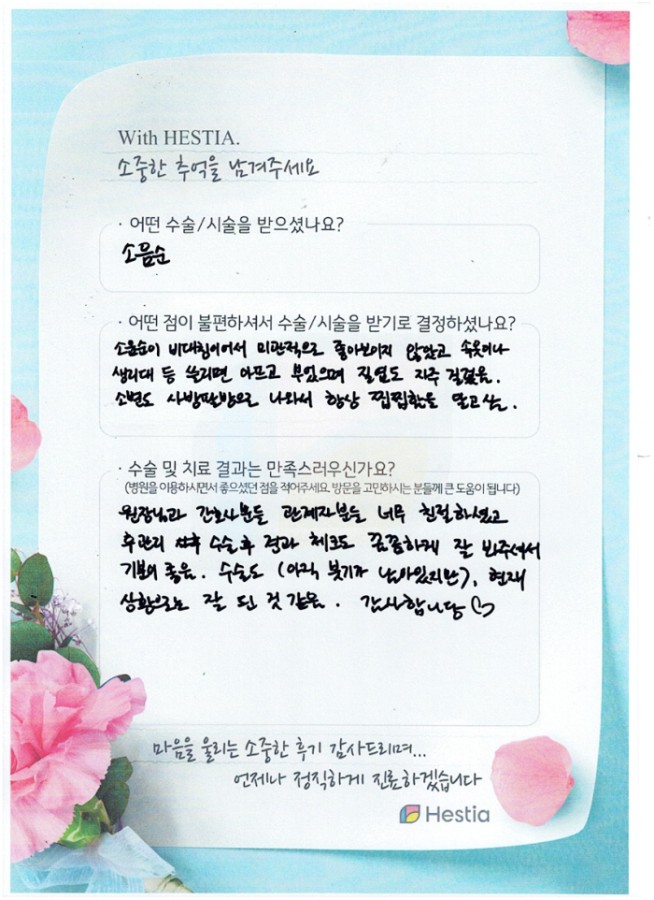 With HESTIA.
소중한 추억을 남겨주세요
· 어떤 수술/시술을 받으셨나요?
소음순
· 어떤 점이 불편하셔서 수술/시술을 받기로 결정하셨나요?
소음순이 비대칭이어서 미관적으로 좋아보이지 않았고 속옷이나
생리대 등 쓸리면 아프고 부었으며 질염도 자주 걸렸음.
소변도 사방팔방으로 나와서 항상 찝찝함을 얻고삶.
· 수술 및 치료 결과는 만족스러우신가요?
(병원을 이용하시면서 좋으셨던 점을 적어주세요. 방문을 고민하시는 분들께 큰 도움이 됩니다)
원장님과 간호사분들 관계자분들 너무 친절하셨고
후관리 수술후 경과 체크도 꼼꼼하게 잘 봐주셔서
기분이 좋음. 수술도 (아직 붓기가 남아있지만), 현재
상황으로는 잘 된 것 같음. 감사합니당♡
마음을 울리는 소중한 후기 감사드리며...
언제나 정직하게 진료하겠습니다
Hestia